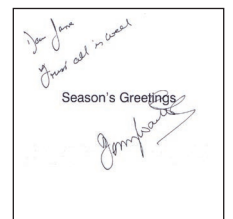 Dear Jane
Trust all is well
Season's Greetings